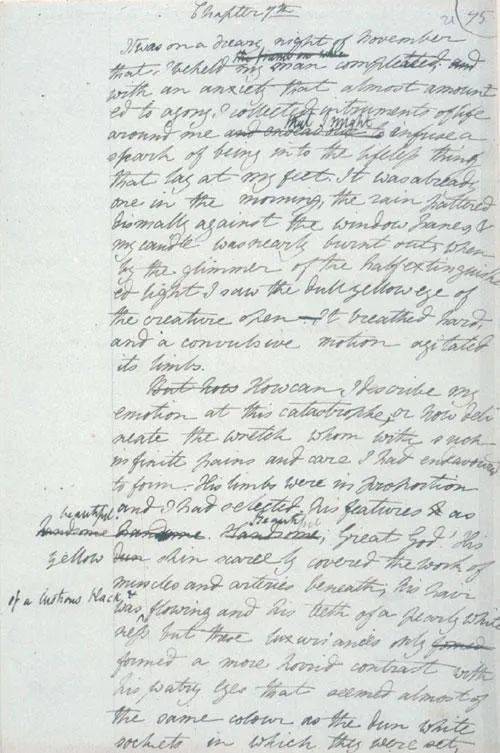 Chapter 7th
21 75
It was on a dreary night of November
the frame on whic
that I beheld my man compleated; and
with an anxiety that almost amount
ed to agony, I collected instruments of life
that I might
around me and endeavour to infuse a
spark of being into the lifeless thing
that lay at my feet. It was already
one in the morning, the rain pattered
dismally against the window panes, &
my candle was nearly burnt out, when
by the glimmer of the half extinguish
ed light I saw the dull yellow eye of
the creature open — It breathed hard,
and a convulsive motion agitated
its limbs.
But how How can I describe my
emotion at this catastrophe, or how deli
neate the wretch whom with such
infinite pains and care I had endeavoured
to form. His limbs were in proportion
and I had selected his features as
beautiful
handsome handsome. Handsome, Great God! His
Beautiful
yellow dun skin scarcely covered the work of
muscles and arteries beneath; his hair
of a lustrous black, &
was flowing and his teeth of a pearly white
ness but these luxuriances only formed
formed a more horrid contrast with
his watry eyes that seemed almost of
the same colour as the dun white
sockets in which they were set